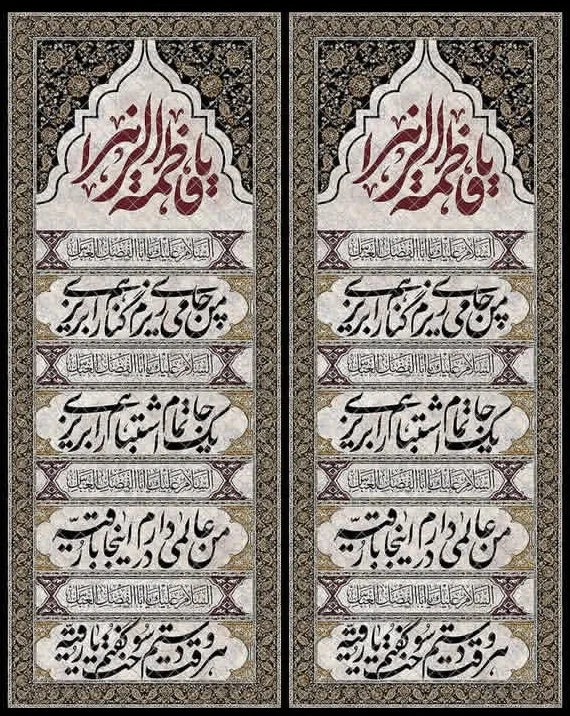 یا فاطمة الزهرا
السلام علیك یا ابا الفضل العباس
من چای می ریزم گناهم را بریزی
السلام علیك یا ابا الفضل العباس
یک جا تمام اشتباهم را بریزی
السلام علیك یا ابا الفضل العباس
من عالمی دارم در اینجا با رقیه
السلام علیك یا ابا الفضل العباس
هر وقت دستم سوخت گفتم یا رقیه
یا فاطمة الزهرا
السلام علیك یا ابا الفضل العباس
من چای می ریزم گناهم را بریزی
السلام علیك یا ابا الفضل العباس
یک جا تمام اشتباهم را بریزی
السلام علیك یا ابا الفضل العباس
من عالمی دارم در اینجا با رقیه
السلام علیك یا ابا الفضل العباس
هر وقت دستم سوخت گفتم یا رقیه